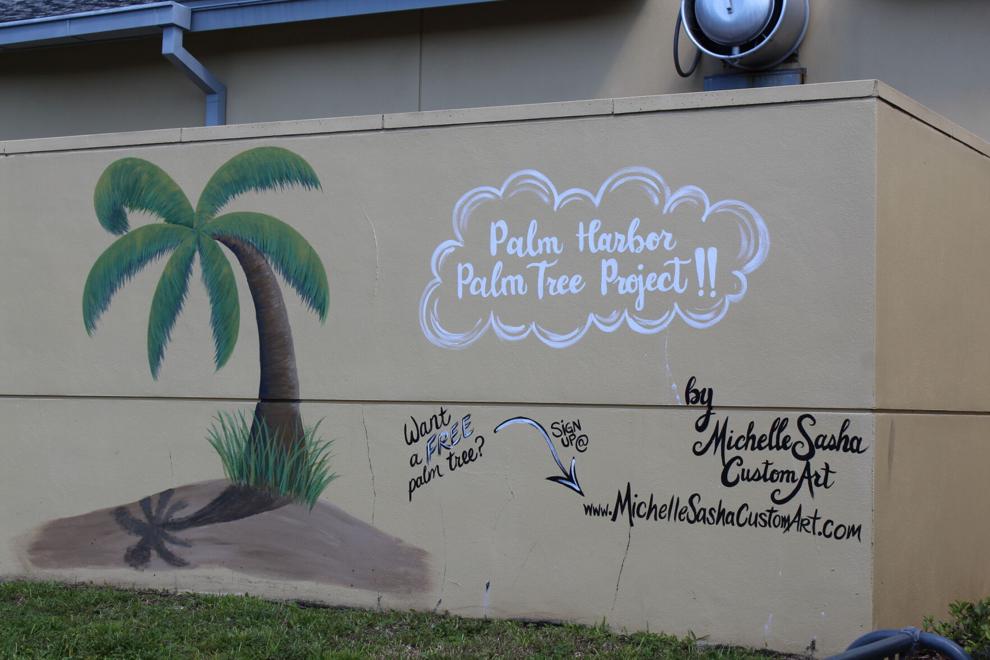 Palm Harbor
Palm Tree Project !!
by
Michelle Sasha
Custom Art
Want
a FREE
palm tree?
SIGN
UP@
www.MichelleSashaCustomArt.com